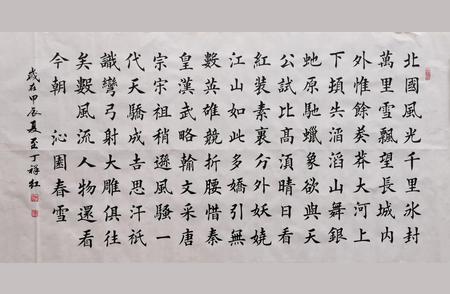 北國風光千里冰封
萬里雪飄望長城内
外惟餘莽莽大河上
下頓失滔滔山舞銀
虵原馳蠟象欲與天
公試比高須晴日看
紅裝素裹分外妖嬈
江山如此多嬌引無
數英雄競折腰惜秦
皇漢武略輸文采唐
宗宋祖稍遜風騷一
代天驕成吉思汗祇
識彎弓射大雕俱往
矣數風流人物還看
今朝 沁園春雪
歲在甲辰夏至丁祥紅